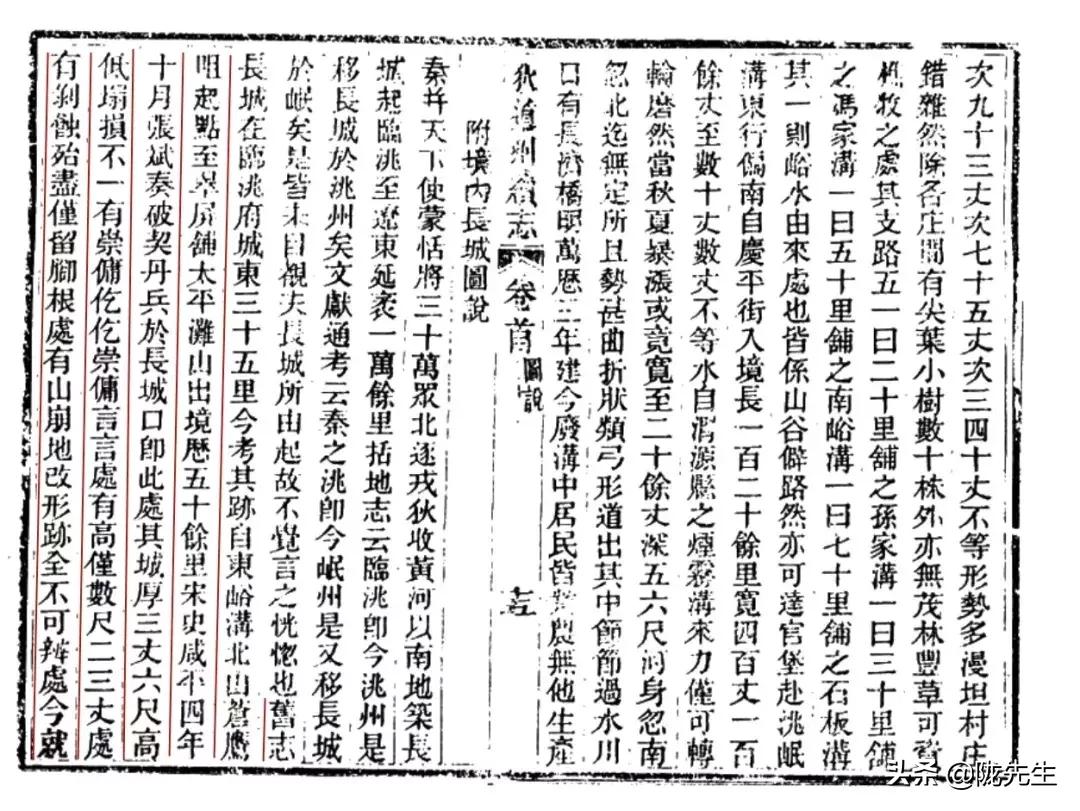 次九十三丈次七十五丈次三四十丈不等形勢多漫坦村庄
錯雜然除各庄間有尖葉小樹數十株外亦無茂林豐草可資
樵牧之處其支路五一曰二十里舖之孫家溝一曰三十里舖
之馮家溝一曰五十里舖之南峪溝一曰七十里舖之石板溝
其一則峪水由來處也皆係山谷僻路然亦可達官堡赴洮岷
溝東行偏南自慶平街入境長一百二十餘里寬四百丈一百
餘丈至數十丈數丈不等水自渭源縣之煙霧溝來力僅可轉
輪磨然當秋夏暴漲或竟寬至二十餘丈深五六尺河身忽南
忽北迄無定所且勢甚曲折狀類弓形道出其中節節過水川
口有長濟橋明萬歷三年建今廢溝中居民皆業農無他生產
狄道州續志 卷首 圖說 十五
附境內長城圖說
秦并天下使蒙恬將三十萬眾北逐戎狄收黃河以南地築長
城起臨洮至遼東延袤一萬餘里括地志云臨洮卽今洮州是
移長城於洮州矣文獻通考云秦之洮卽今岷州是又移長城
於岷矣是皆未目覩夫長城所由起故不覺言之恍惚也舊志
長城在臨洮府城東三十五里今考其跡自東峪溝北山蒼鷹
咀起點至翠屏舖太平灘山出境歷五十餘里宋史咸平四年
十月張斌奏破契丹兵於長城口卽此處其城厚三丈六尺高
低塌損不一有崇傭仡仡崇傭言言處有高僅數尺二三丈處
有剝蝕殆盡僅留腳根處有山崩地改形跡全不可辨處今就
头条 @陇先生